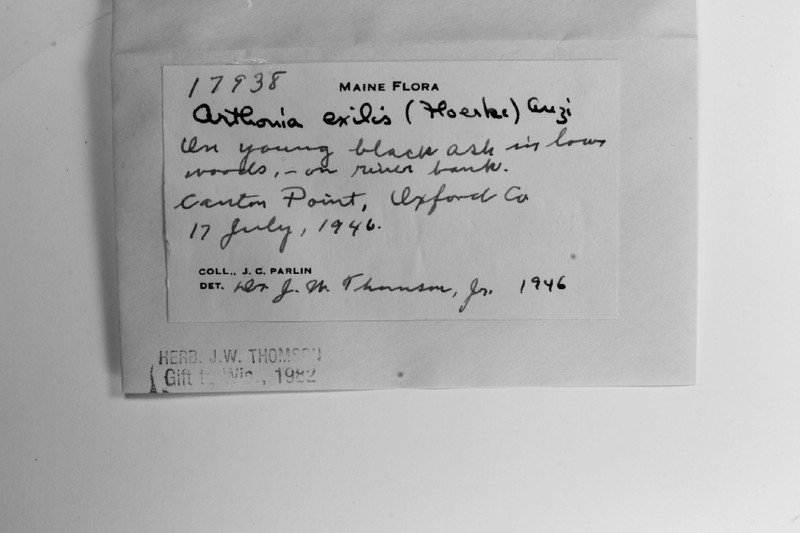 17938
MAINE FLORA
Arthonia exilis (Floerke) Anzi
On young black ash in low
woods, - on river bank.
Canton Point, Oxford Co
17 July, 1946.
COLL., J. C. PARLIN
DET. Dr J. W. Thomson, Jr. 1946
HERB. J.W. THOMSON
Gift to Wis., 1982